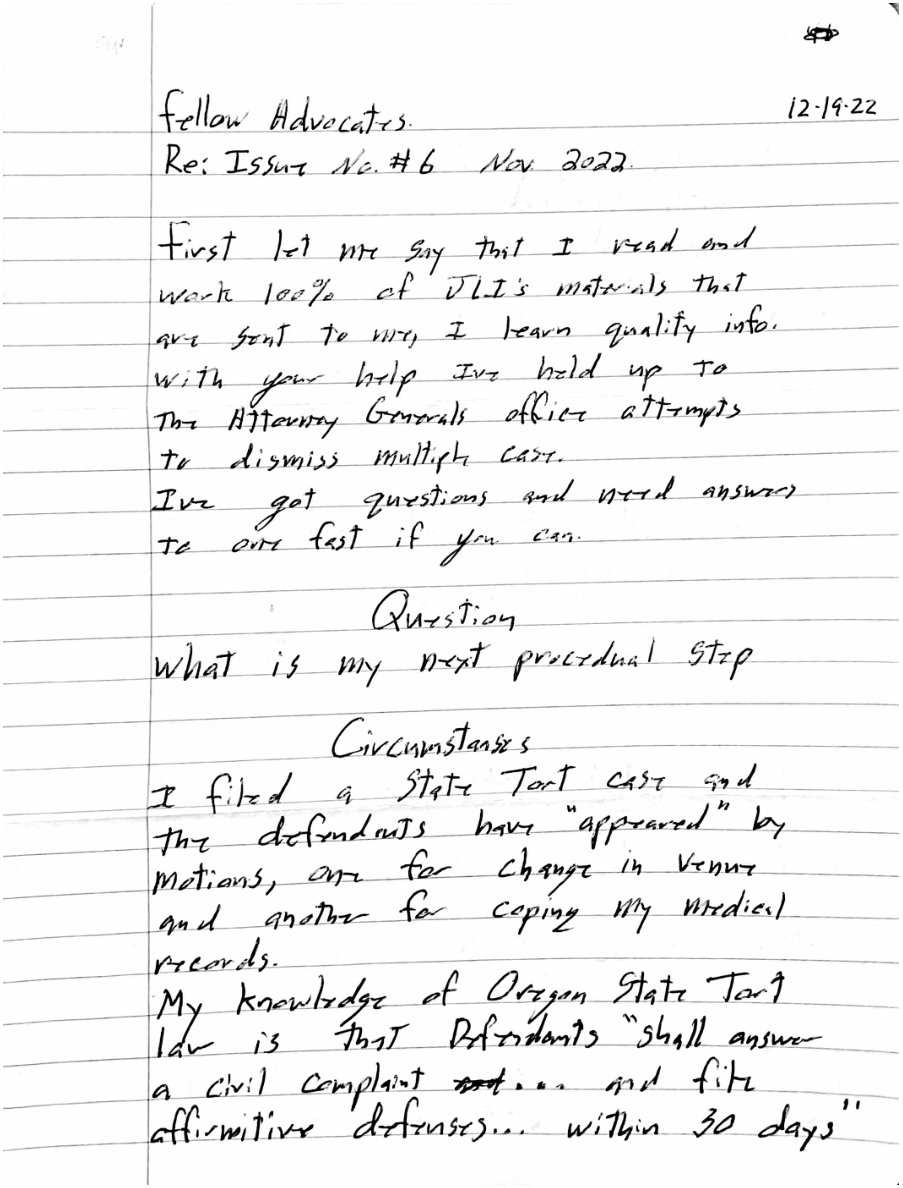 12-19-22
Fellow Advocates.
Re: Issue No. #6 Nov. 2022.
First let me say that I read and
work 100% of JLI's materials that
are sent to me, I learn quality info.
With your help Ive held up to
The Attorney Generals office attempts
to dismiss multiple case.
Ive got questions and need answers
to one fast if you can.
Question
What is my next procedual step
Circumstanses
I filed a State Tort case and
the defendants have "appeared" by
motions, one for change in venue
and another for coping my medical
records.
My knowledge of Oregon State Tort
law is that Defendants "shall answer
a civil complaint ... and file
affirmitive defenses... within 30 days"